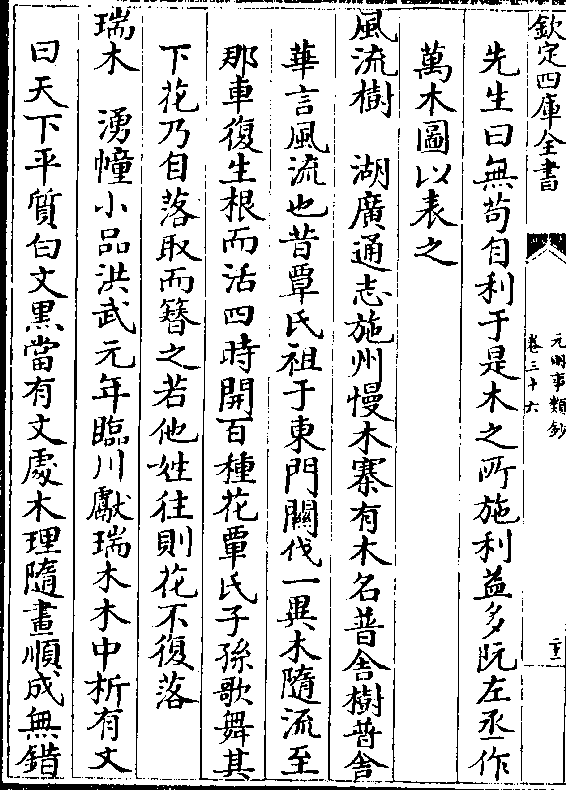 欽定四庫全書
元明事類鈔
卷三十六
先生曰無苟自利于是木之所施利益多阮左丞作
萬木圖以表之
風流樹　湖廣通志施州慢木寨有木名普舍樹普舍
華言風流也昔覃氏祖于東門關伐一異木隨流至
那車復生根而活四時開百種花覃氏子孫歌舞其
下花乃自落取而簪之若他姓往則花不復落
瑞木　湧幢小品洪武元年臨川獻瑞木木中析有文
曰天下平質白文黑當有文處木理隨畫順成無錯